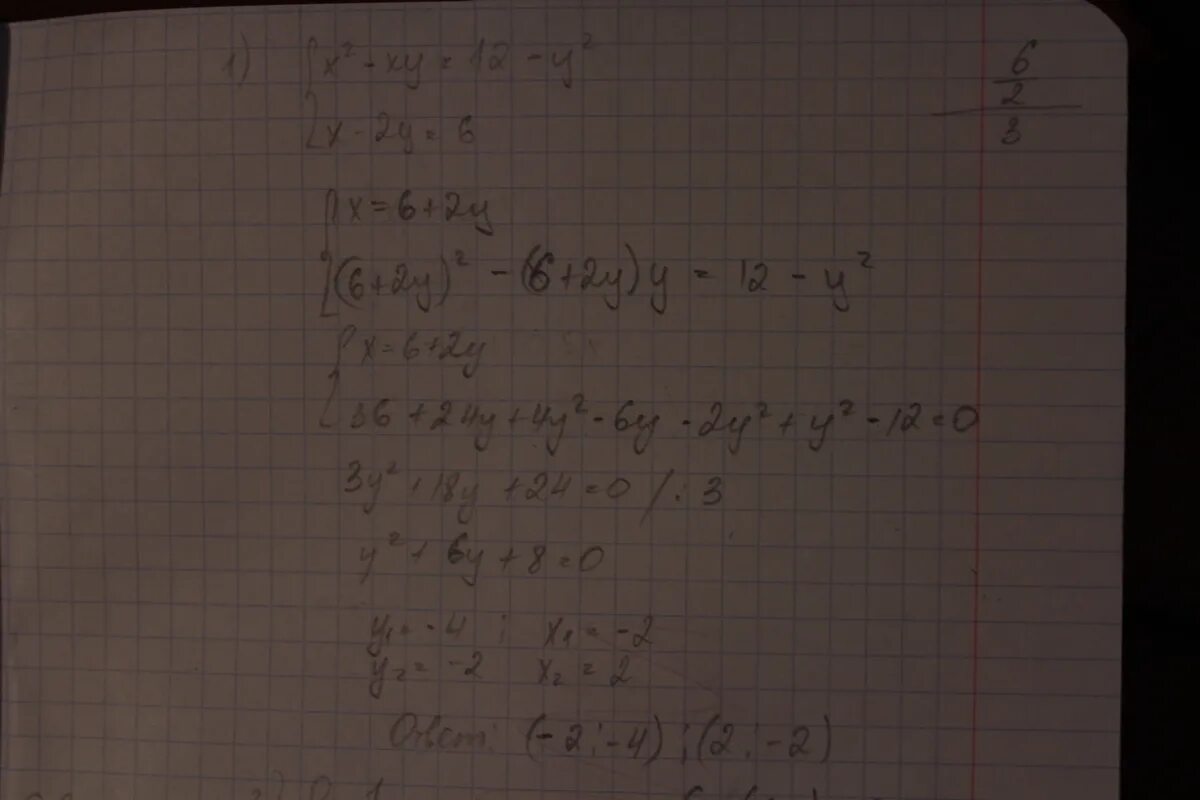 1) { x² - xy = 12 - y²
{ x - 2y = 6
6
2
3
{ x = 6 + 2y
{ (6 + 2y)² - (6 + 2y) y = 12 - y²
{ x = 6 + 2y
{ 36 + 24y + 4y² - 6y - 2y² + y² - 12 = 0
3y² + 18y + 24 = 0 / : 3
y² + 6y + 8 = 0
y₁ = -4 ; x₁ = -2
y₂ = -2 x₂ = 2
Ответ: (-2 ; -4) ; (2 ; -2)